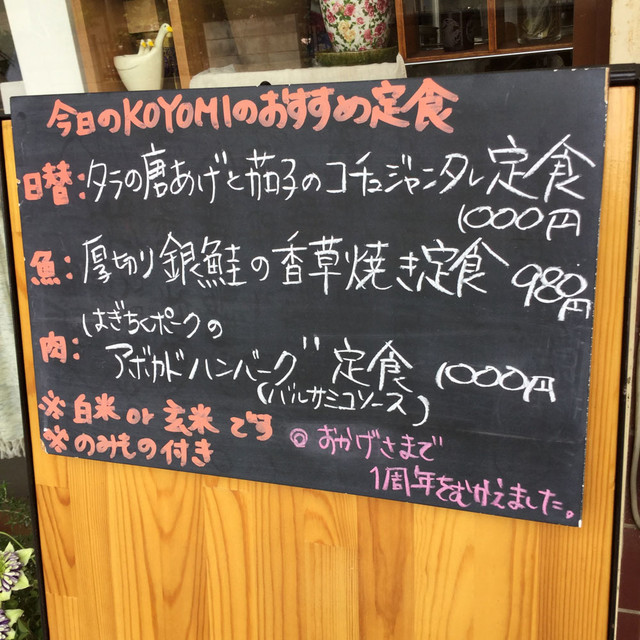 今日のKOYOMIのおすすめ定食
日替:タラの唐あげと茄子のコチュジャンタレ定食
1000円
魚:厚切り銀鮭の香草焼き定食 980円
肉:はぎちくポークの
アボカドハンバーグ定食 1000円
(バルサミコソース)
※白米or玄米です
※のみもの付き
◎おかげさまで
1周年をむかえました。